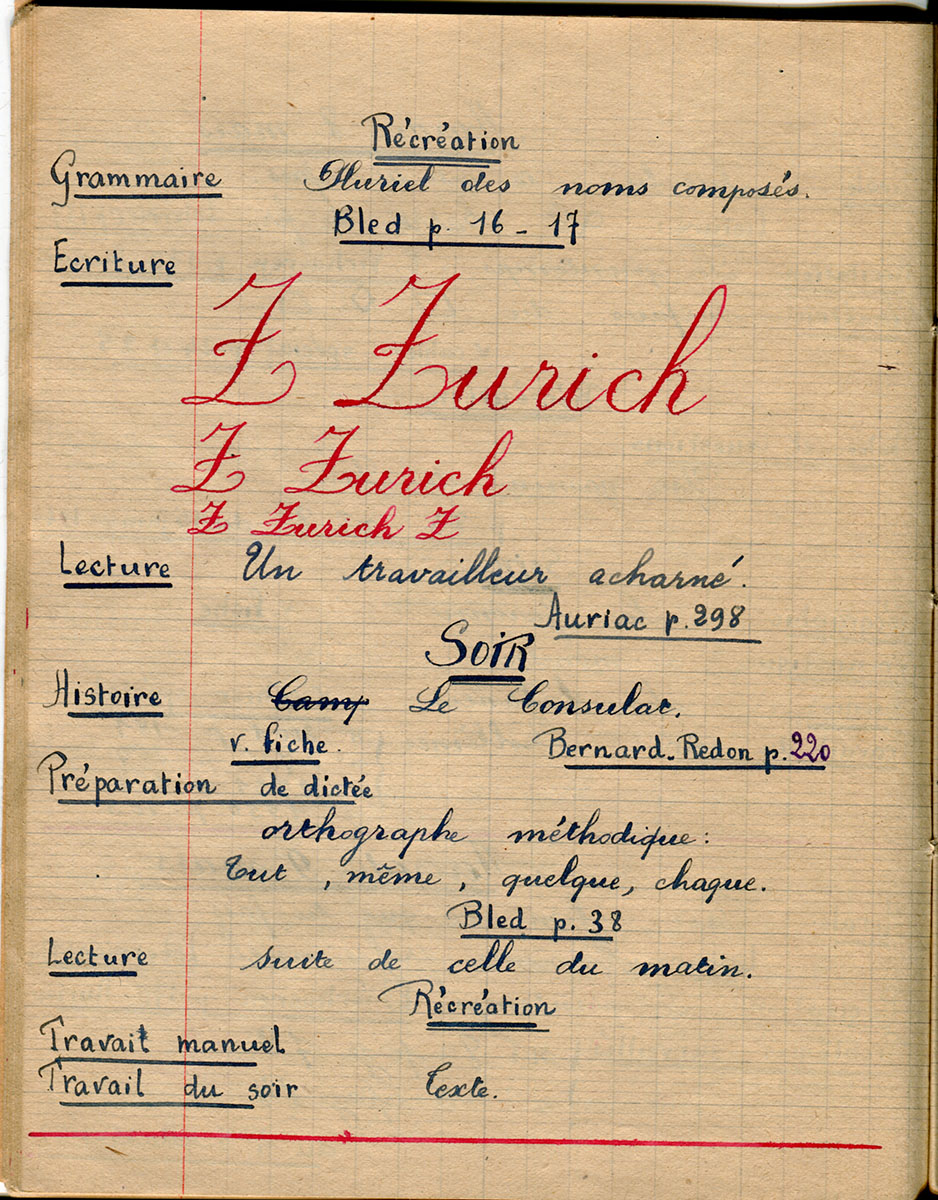 Récréation
Grammaire Pluriel des noms composés.
Bled p. 16 - 17
Ecriture
Z Zurich
Z Zurich
Z Zurich Z
Lecture Un travailleur acharné.
Auriac p. 298
SOIR
Histoire Camp Le Consulat.
v. fiche. Bernard-Redon p. 220
Préparation de dictée
orthographe méthodique :
Tout, même, quelque, chaque.
Bled p. 38
Lecture suite de celle du matin.
Récréation
Travail manuel
Travail du soir Texte.